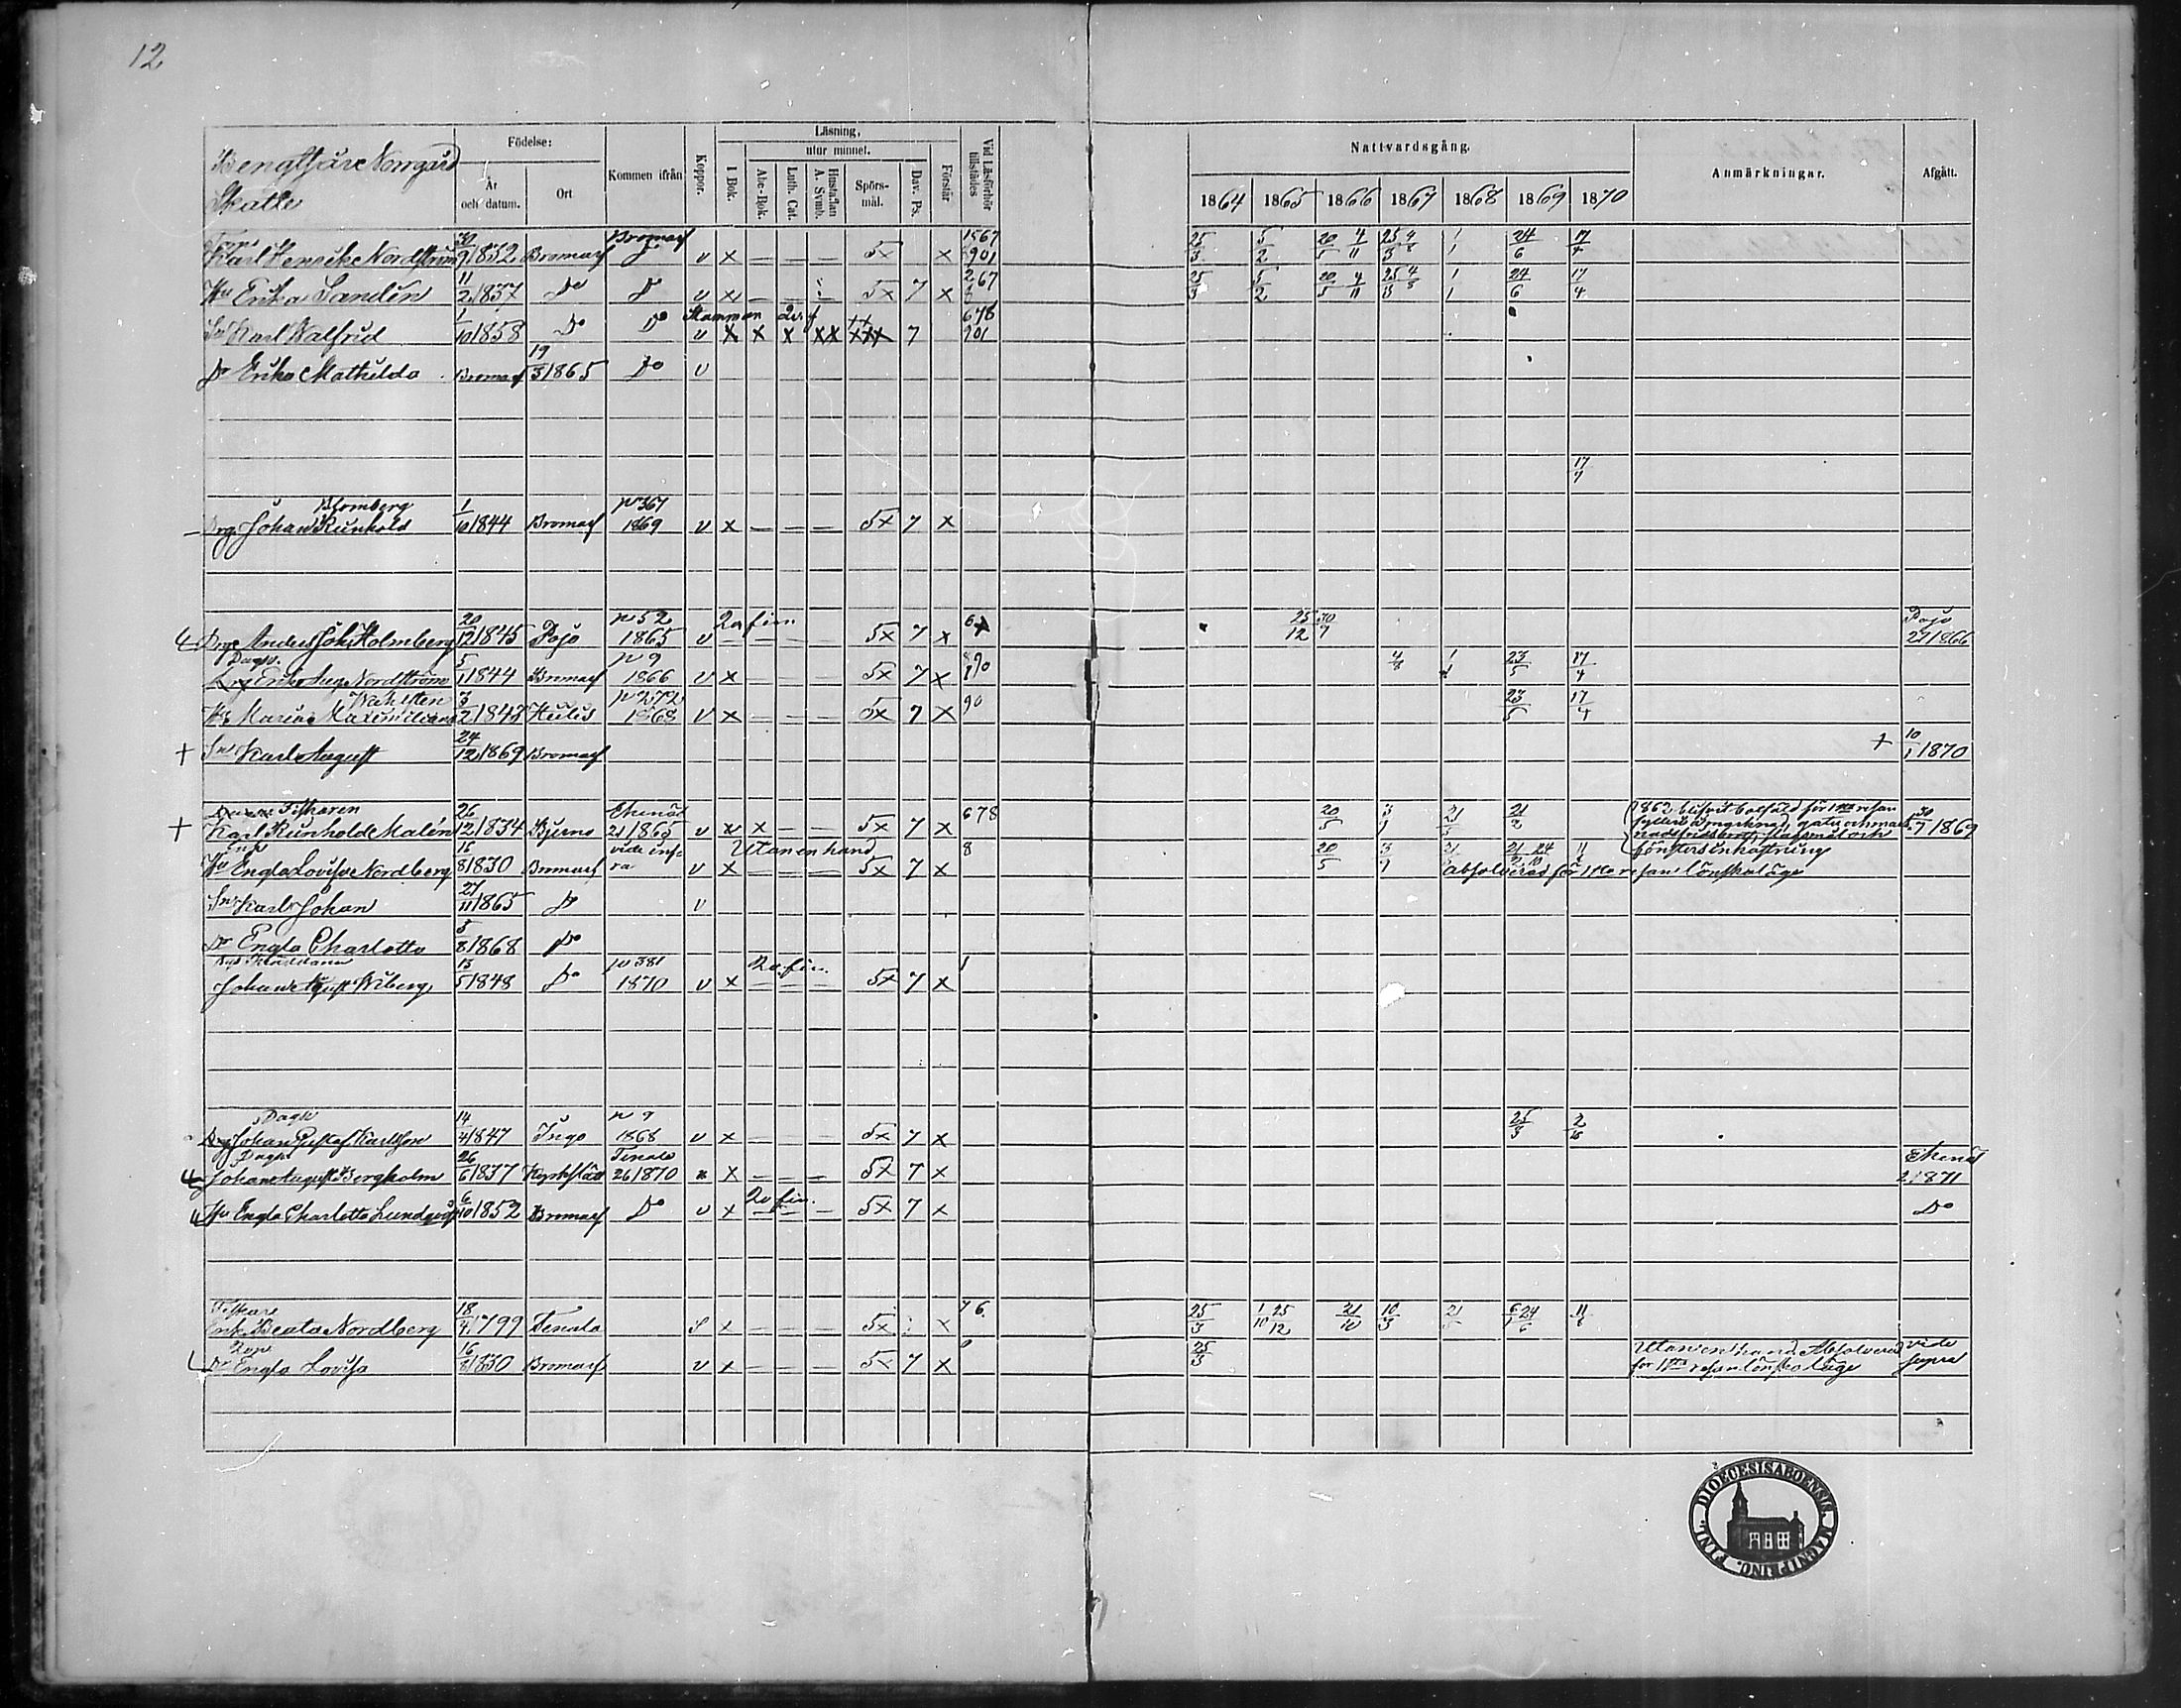 12
Bengtsåre Norrgård
Skatte
Födelse:
År och datum.
Ort
Kommen ifrån
Koppor.
Läsning,
utur minnet.
I Bok.
Abc-Bok.
Luth. Cat.
Hustaflan A. Symb.
Spörsmål.
Dav. Ps.
Förstår
Vid Läsförhör tillstädes
Nattvardsgång.
1864 1865 1866 1867 1868 1869 1870
Anmärkningar.
Afgått.
Karl Henrik Nordström 30/9 1832 Bromarf Bromarf v x — — — 5x x 1567 901 25/3 5/2 20/5 4/11 25/3 4/8 1/1 24/6 17/4
Hu Erika Sandén 11/2 1837 Do Do v x — — — 5x 7 x 267 25/3 5/2 20/5 4/11 25/3 4/8 1/1 24/6 17/4
Sn Karl Walfrid 1/10 1858 Do Do v x x x xx xxx 7 678 901
Dr Erika Mathilda Bromarf 19/3 1865 Do v
17/4
Blomberg
Drg Johan Reinhold 1/10 1844 Bromarf p 367 1869 v x — — — 5x 7 x
Drg Anders Joh. Holmberg 20/12 1845 Pojo p 52 1865 v — — — — 5x 7 x 67 25/12 30/7 Pojo 27 1866
Dagk.
Drg Erik Aug. Nordström 5/1 1844 Bromarf p 9 1866 v x — — — 5x 7 x 890 4/8 1/1 23/5 17/4
Wahlsten
Hu Maria Maximiliana 3/2 1843 p 272 1868 v x — — — 5x 7 x 90 23/5 17/4
+ Sn Karl August 24/12 1869 Bromarf + 10/1 1870
Fiskaren
+ Karl Reinhold Malén 26/12 1834 Bjerno Ekenäs 21 1865 v x x — — 5x 7 x 678 20/5 3/1 21/5 21/2 30/7 1869
1862 blifvit botfäld för 1sta resan
fylleri å marknad, gatu och mark-
nadsfridsbrott, slagsmål och
fönsters inkastning
Enk
Hu Engla Lovisa Nordberg 16/8 1830 Bromarf vide infra v x — — — 5x 7 x 8 20/5 3/1 21 21/2 24/10 11
Utan en hand
absolverad för 1sta resan lönskaläge
Sn Karl Johan 27/11 1865 Do v
Dr Engla Charlotta 5/8 1868 Do
Johan August Wiberg 13/5 1848 Do p 381 1870 v x — — — 5x 7 x 1
Dagk
Drg Johan Gustaf Karlsson 14/4 1847 Ingo p 9 1868 v x — — — 5x 7 x 25/3 2/10
Dagk
Johan August Bergholm 26/6 1837 Kyrkslätt Tenala 26 1870 x — — — 5x 7 x Ekenäs 2 1871
Hu Engla Charlotta Lundqvist 6/10 1852 Bromarf Do v x — — — 5x 7 x Do
Fiskare
Enk. Beata Nordberg 18/4 1799 Tenala x — — — 5x x 76 25/3 1/10 25/12 21/10 10/3 21 6/1 24/6 11
Dr Engla Lovisa 16/8 1830 Bromarf v x — — — 5x 7 x 25/3
Utan en hand. Absolverad
för 1sta resan lönskaläge
vide supra
DIOECESIS ABOENSIS MAGNI PRINC. FINL.